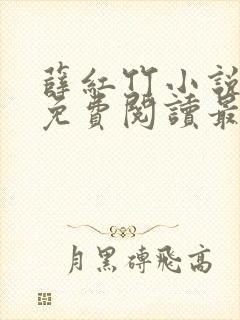 薛紅竹小說
免費閱讀最
月黑磚飛高